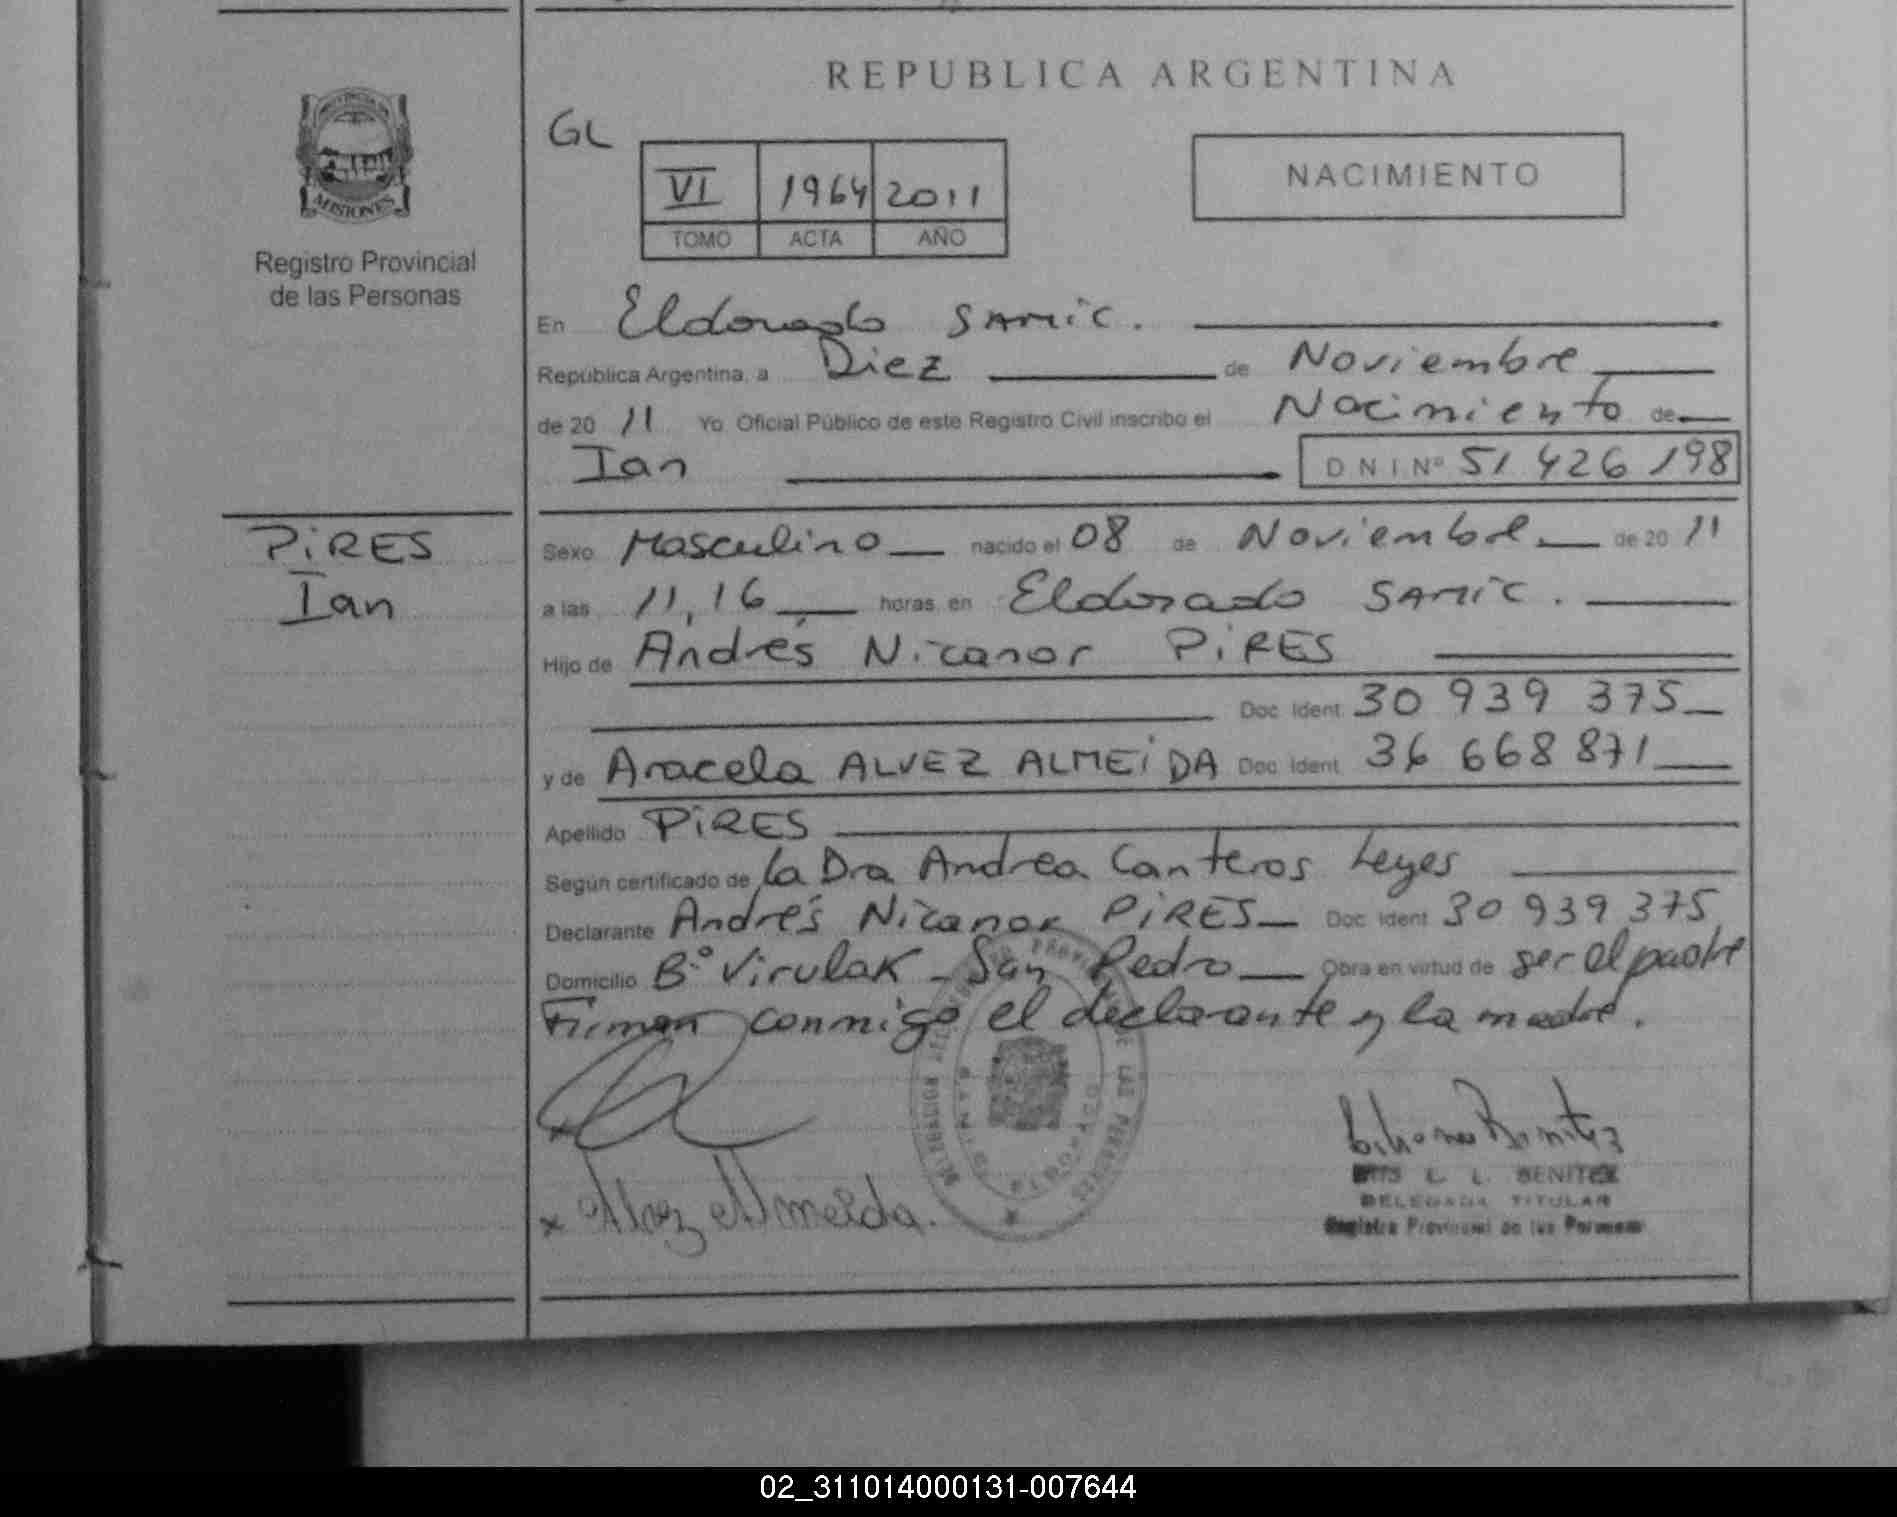 REPUBLICA ARGENTINA
GL
VI 1964 2011
TOMO ACTA AÑO
NACIMIENTO
MISIONES
Registro Provincial
de las Personas
En Eldorado SAMIC.
República Argentina, a Diez de Noviembre
de 20 11 Yo Oficial Público de este Registro Civil inscribo el Nacimiento de
Ian DNI Nº 51 426 198
PIRES
Ian
Sexo Masculino nacido el 08 de Noviembre de 20 11
a las 11,16 horas en Eldorado SAMIC.
Hijo de Andrés Nicanor PIRES
Doc Ident 30 939 375
y de Aracela ALVEZ ALMEIDA Doc Ident 36 668 871
Apellido PIRES
Según certificado de la Dra Andrea Canteros Leyes
Declarante Andrés Nicanor PIRES Doc Ident 30 939 375
Domicilio Bº Virulak - San Pedro Obra en virtud de ser el padre
Firman conmigo el declarante y la madre.
x
x Alvez Almeida.
BENITEZ
DELEGADA TITULAR
Registro Provincial de las Personas
02_311014000131-007644